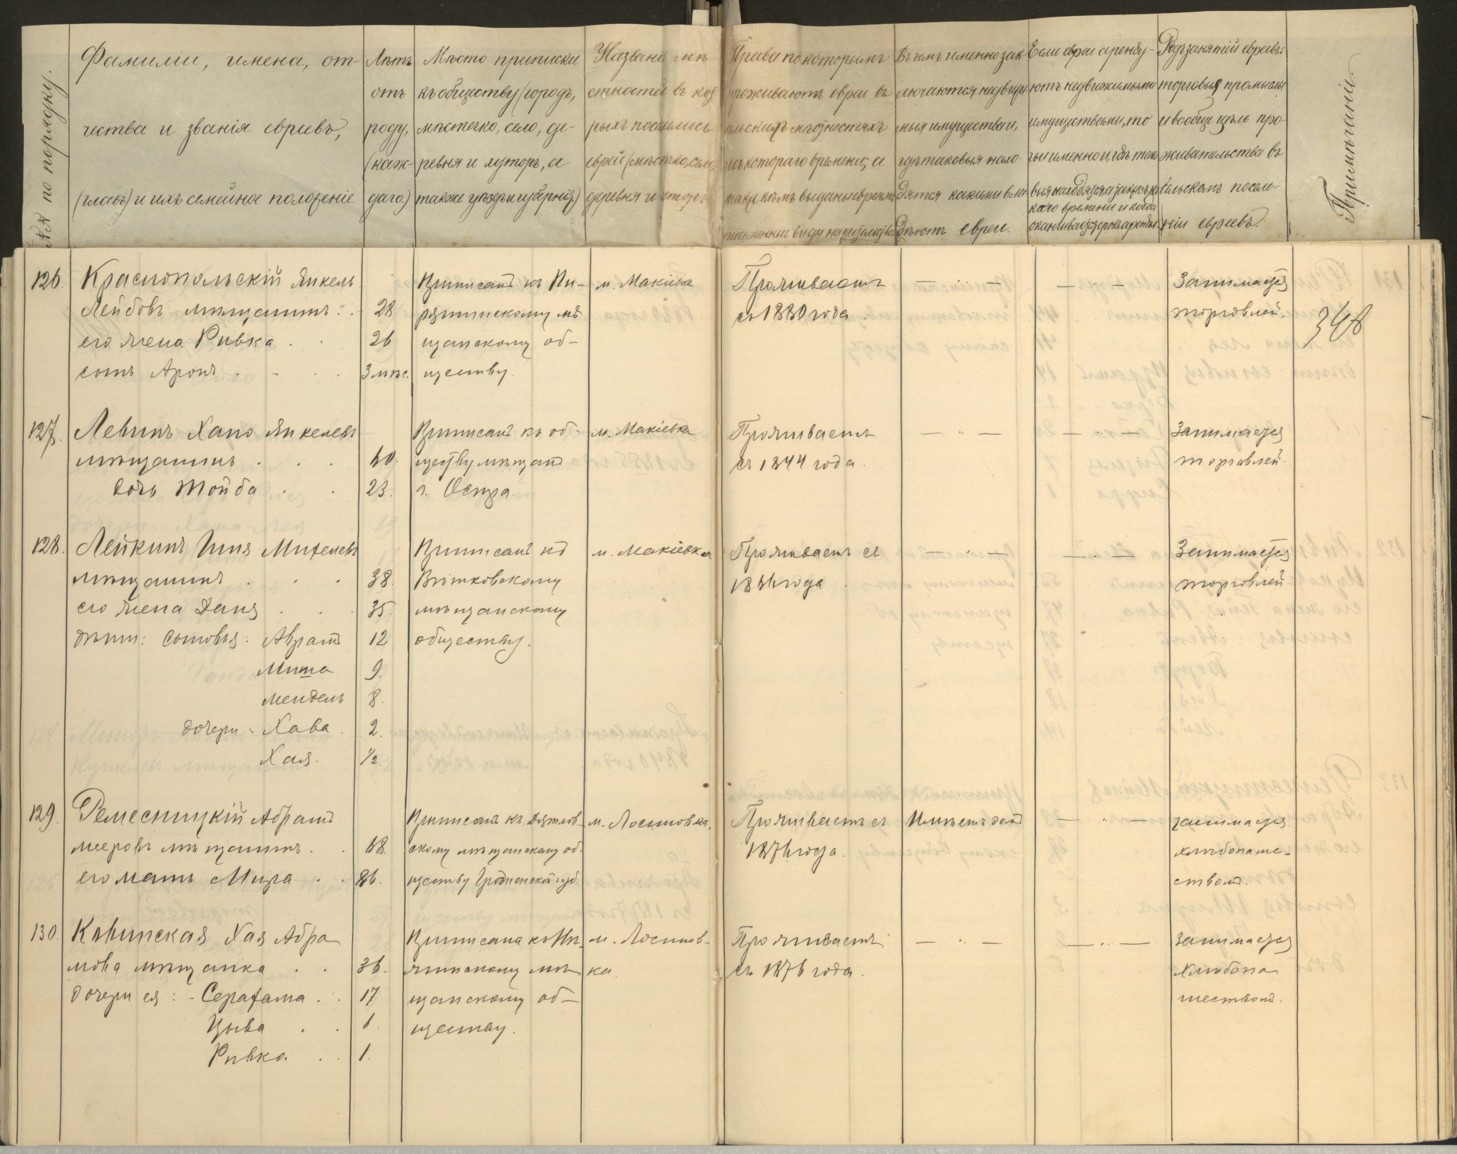 №№ по порядку.
Фамиліи, имена, от-
чества и званія евреевъ,
(главъ) и ихъ семейное положеніе
Лѣтъ
отъ
роду,
(каж-
даго)
Мѣсто приписки
къ обществу (городъ,
мѣстечко, село, де-
ревня и хуторъ, а
также уѣздъ и губернія)
Названіе мѣ-
стностей въ кот
рыхъ поселились
евреи (мѣстечко, село,
деревня и хуторъ
Права по которымъ
проживаютъ евреи въ
сельскихъ мѣстностяхъ
съ котораго времени; а
Въ чемъ именно зак
лючаются недвижи
мыя имущества и,
гдѣ таковыя нахо
дятся какими вла
дѣютъ евреи.
Если евреи аренду-
ютъ недвижимыми
имуществами, то
Родъ занятій евреевъ:
торговля, промыслы
и вообще цѣль про-
живательства въ
сельскомъ посел-
ніи евреевъ.
Примѣчаніе
126. Краснопольскій Янкель
Лейбовъ мѣщанинъ . 28
его жена Ривка . . 26
сынъ Аронъ . . . . 3 мѣс.
Приписанъ къ Пи-
рятинскому мѣ
щанскому об-
ществу.
м. Макіевка
Проживаетъ
съ 1880 года.
— „ —
— „ —
Занимается
торговлей.
348
127. Левинъ Хапо Янкелевъ
мѣщанинъ . . . 60.
дочь Тойба . . 23.
Приписанъ къ об-
ществу мѣщанъ
г. Остра.
м. Макіевка
Проживаетъ
съ 1844 года.
— „ —
— „ —
Занимается
торговлей.
128. Лейкинъ Гиля Михелевъ
мѣщанинъ . . . 38.
его жена Ханя . . 35.
дѣти: сыновья: Аврамъ 12
Миша 9.
Мендель 8.
дочери - Хава . 2.
Хая. ½.
Приписанъ къ
Вѣтковскому
мѣщанскому
обществу.
м. Макіевка
Проживаетъ съ
— „ —
— „ —
Занимается
торговлей.
129. Ремесницкій Абрамъ
мееровъ мѣщанинъ . . 68.
его мать Мира . . 86.
скому мѣщанскому об-
ществу Гродненской губ
м. Лосиновка.
Проживаетъ съ
1876 года.
Имѣетъ домъ
— „ —
занимается
хлѣбопаше-
ствомъ.
130. Клвинская Хая Абра
мова мѣщанка . . 36.
дочери ея: - Серафама . . 17
Цыва . . 6.
Ривка . . 1.
Приписана къ Нѣ-
жинскому мѣ-
щанскому об-
ществу.
м. Лосинов-
ка.
Проживаетъ
съ 1876 года.
— „ —
— „ —
Занимается
хлѣбопа
шествомъ.